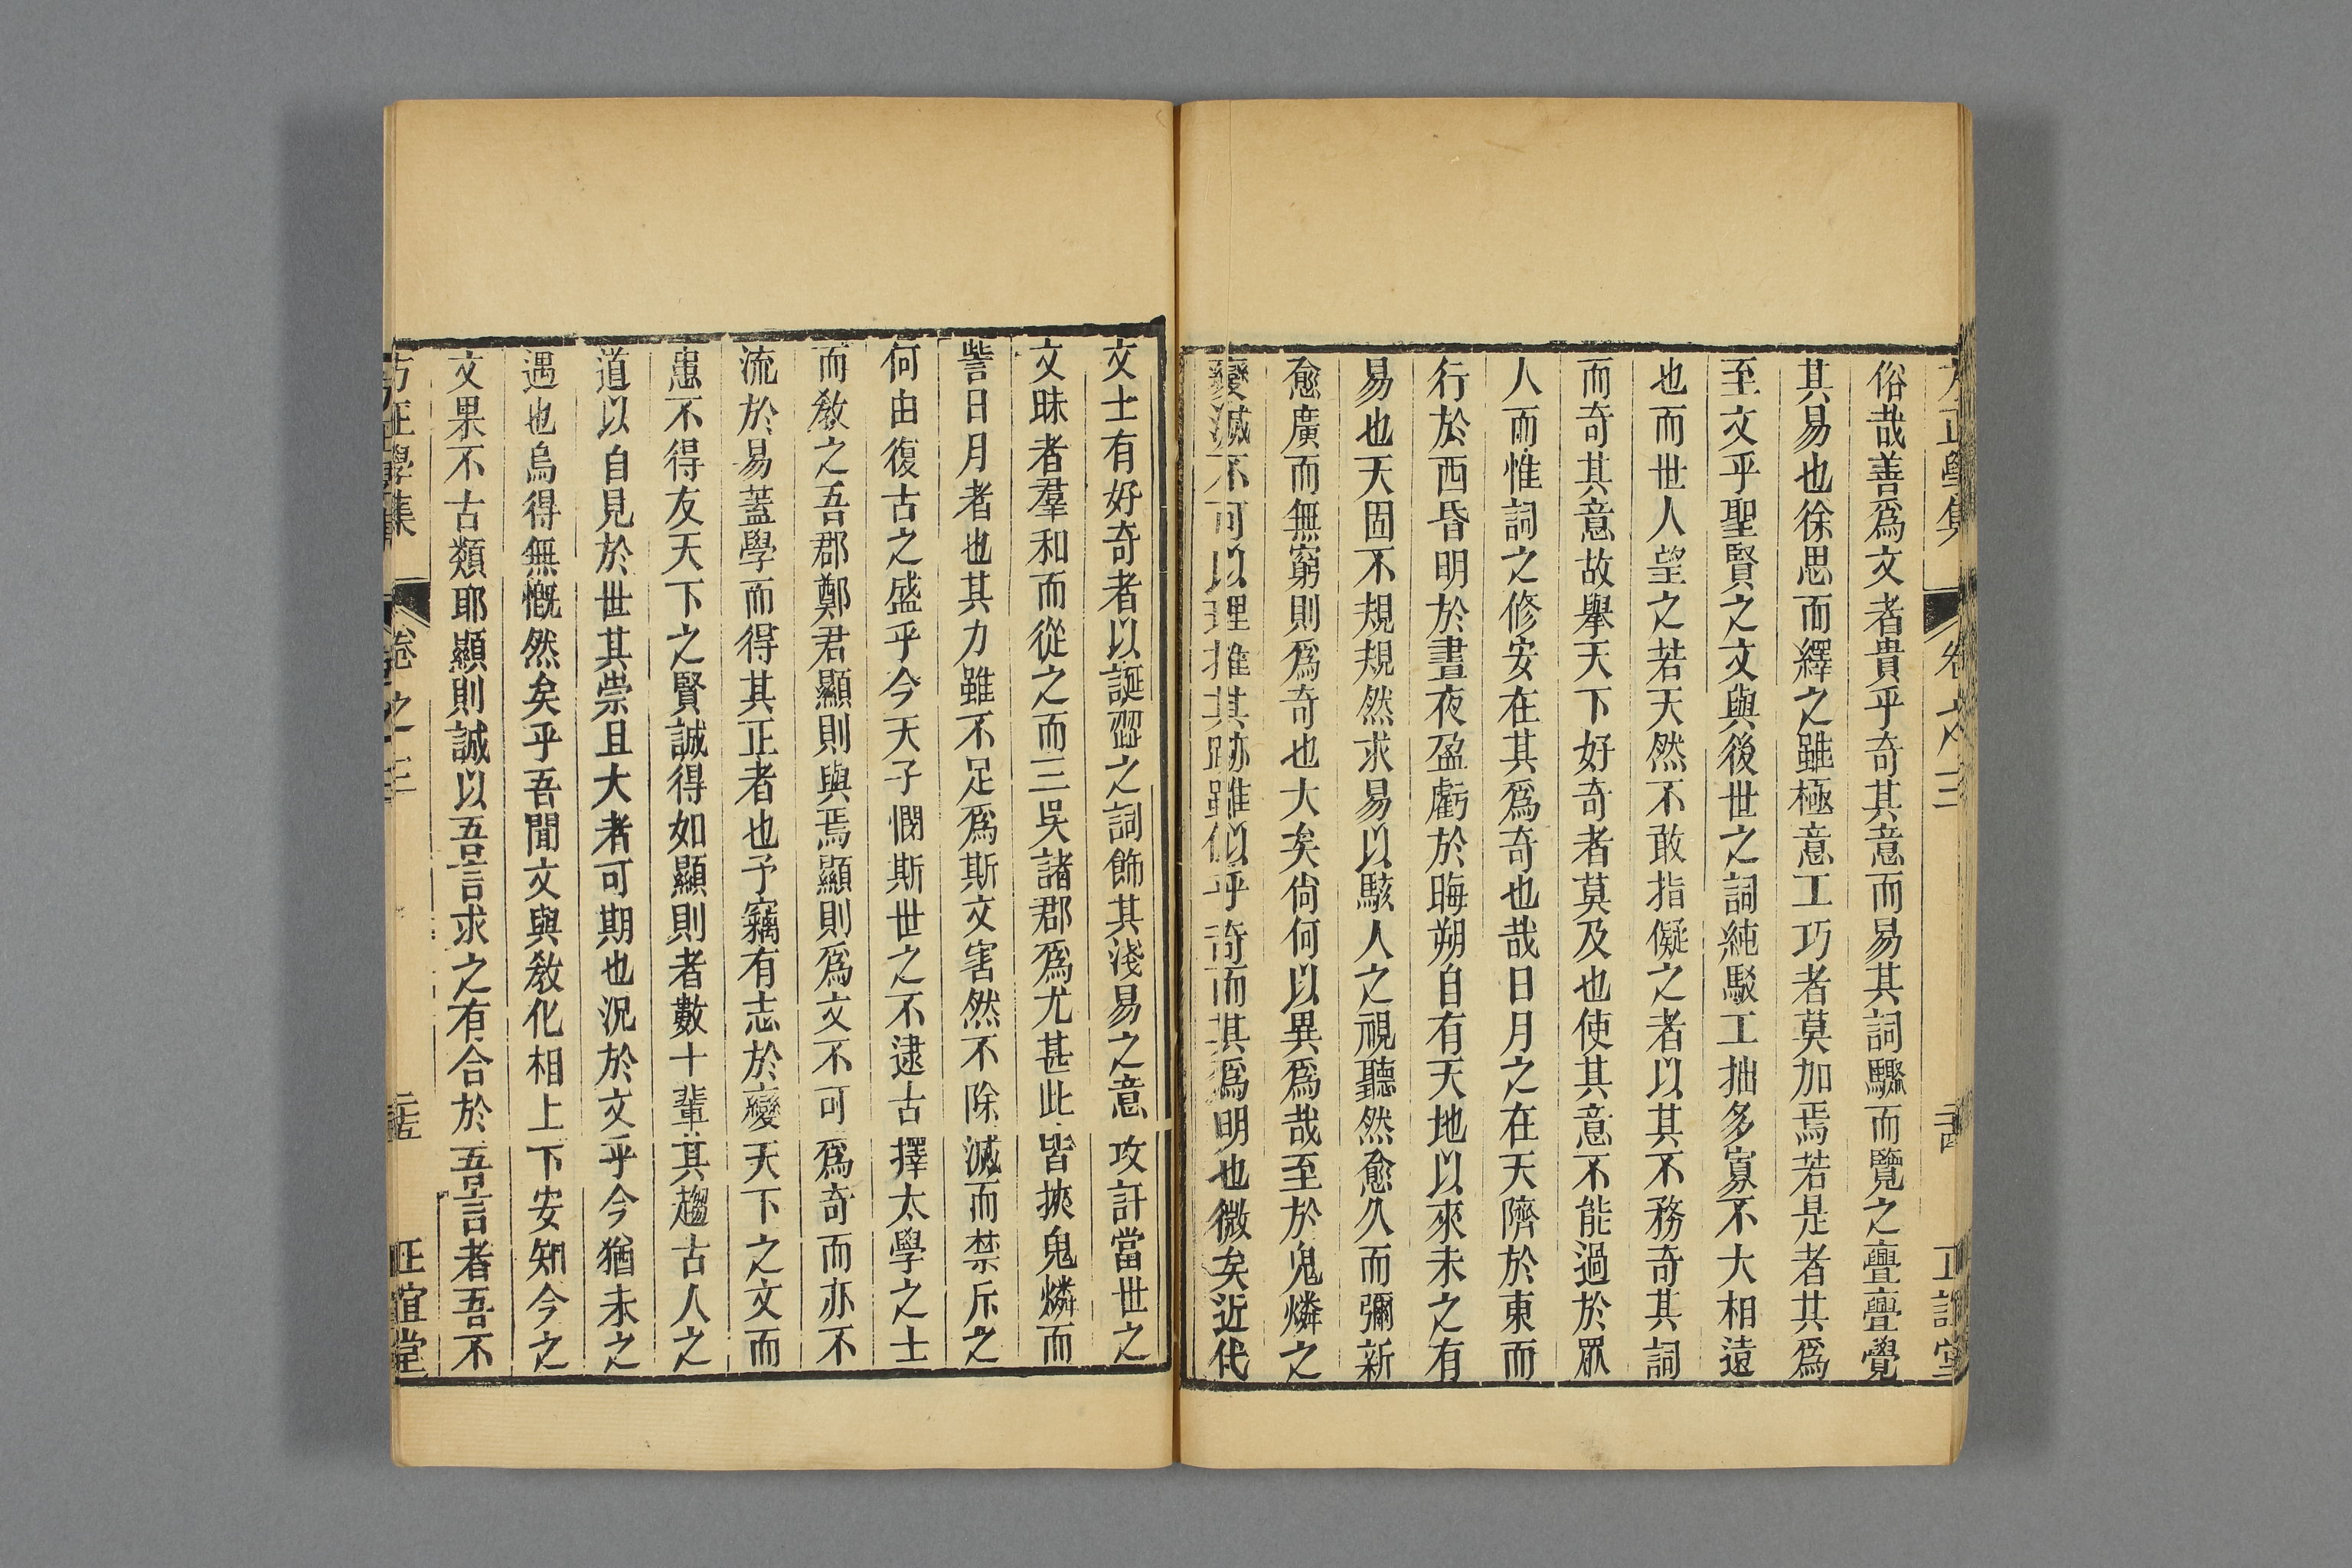 俗哉善爲文者貴乎奇其意而易其詞驟而覽之亹亹覺
其易也徐思而繹之雖極意工巧者莫加焉若是者其爲
至文乎聖賢之文與後世之詞純駁工拙多寡不大相遠
也而世人望之若天然不敢指儗之者以其不務奇其詞
而奇其意故擧天下好奇者莫及也使其意不能過於眾
人而惟詞之修安在其爲奇也哉日月之在天隮於東而
行於西昏明於晝夜盈虧於晦朔自有天地以來未之有
易也天固不規規然求易以駭人之視聽然愈久而彌新
愈廣而無窮則爲奇也大矣尙何以異爲哉至於鬼燐之
變滅不可以理推其跡雖似乎奇而其爲明也微矣近代
文士有好奇者以誕澀之詞飾其淺易之意攻訐當世之
文昧者羣和而從之而三吳諸郡爲尤甚此皆挾鬼燐而
訾日月者也其力雖不足爲斯文害然不除滅而禁斥之
何由復古之盛乎今天子憫斯世之不逮古擇太學之士
而敎之吾郡鄭君顯則與焉顯則爲文不可爲奇而亦不
流於易蓋學而得其正者也予竊有志於變天下之文而
患不得友天下之賢誠得如顯則者數十輩其趨古人之
道以自見於世其崇且大者可期也況於文乎今猶未之
遇也烏得無慨然矣乎吾聞文與敎化相上下安知今之
文果不古類耶顯則誠以吾言求之有合於吾言者吾不
方正學集 卷之三 正誼堂